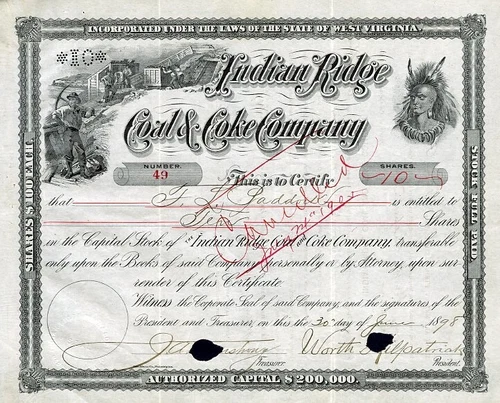 INCORPORATED UNDER THE LAWS OF THE STATE OF WEST VIRGINIA.
*10*
Indian Ridge
Coal & Coke Company
NUMBER.
49
SHARES.
10
This is to Certify
that T. L. is entitled to
Ten Shares
Cancelled
in the Capital Stock of "Indian Ridge Coal and Coke Company, transferable
only upon the Books of said Company personally or by Attorney, upon sur-
render of this Certificate.
Witness the Corporate Seal of said Company, and the signatures of the
President and Treasurer on this the 30" day of June 1898
Worth Kilpatrick
Treasurer President.
AUTHORIZED CAPITAL $200,000.
SHARES $100 EACH
STOCK FULL PAID